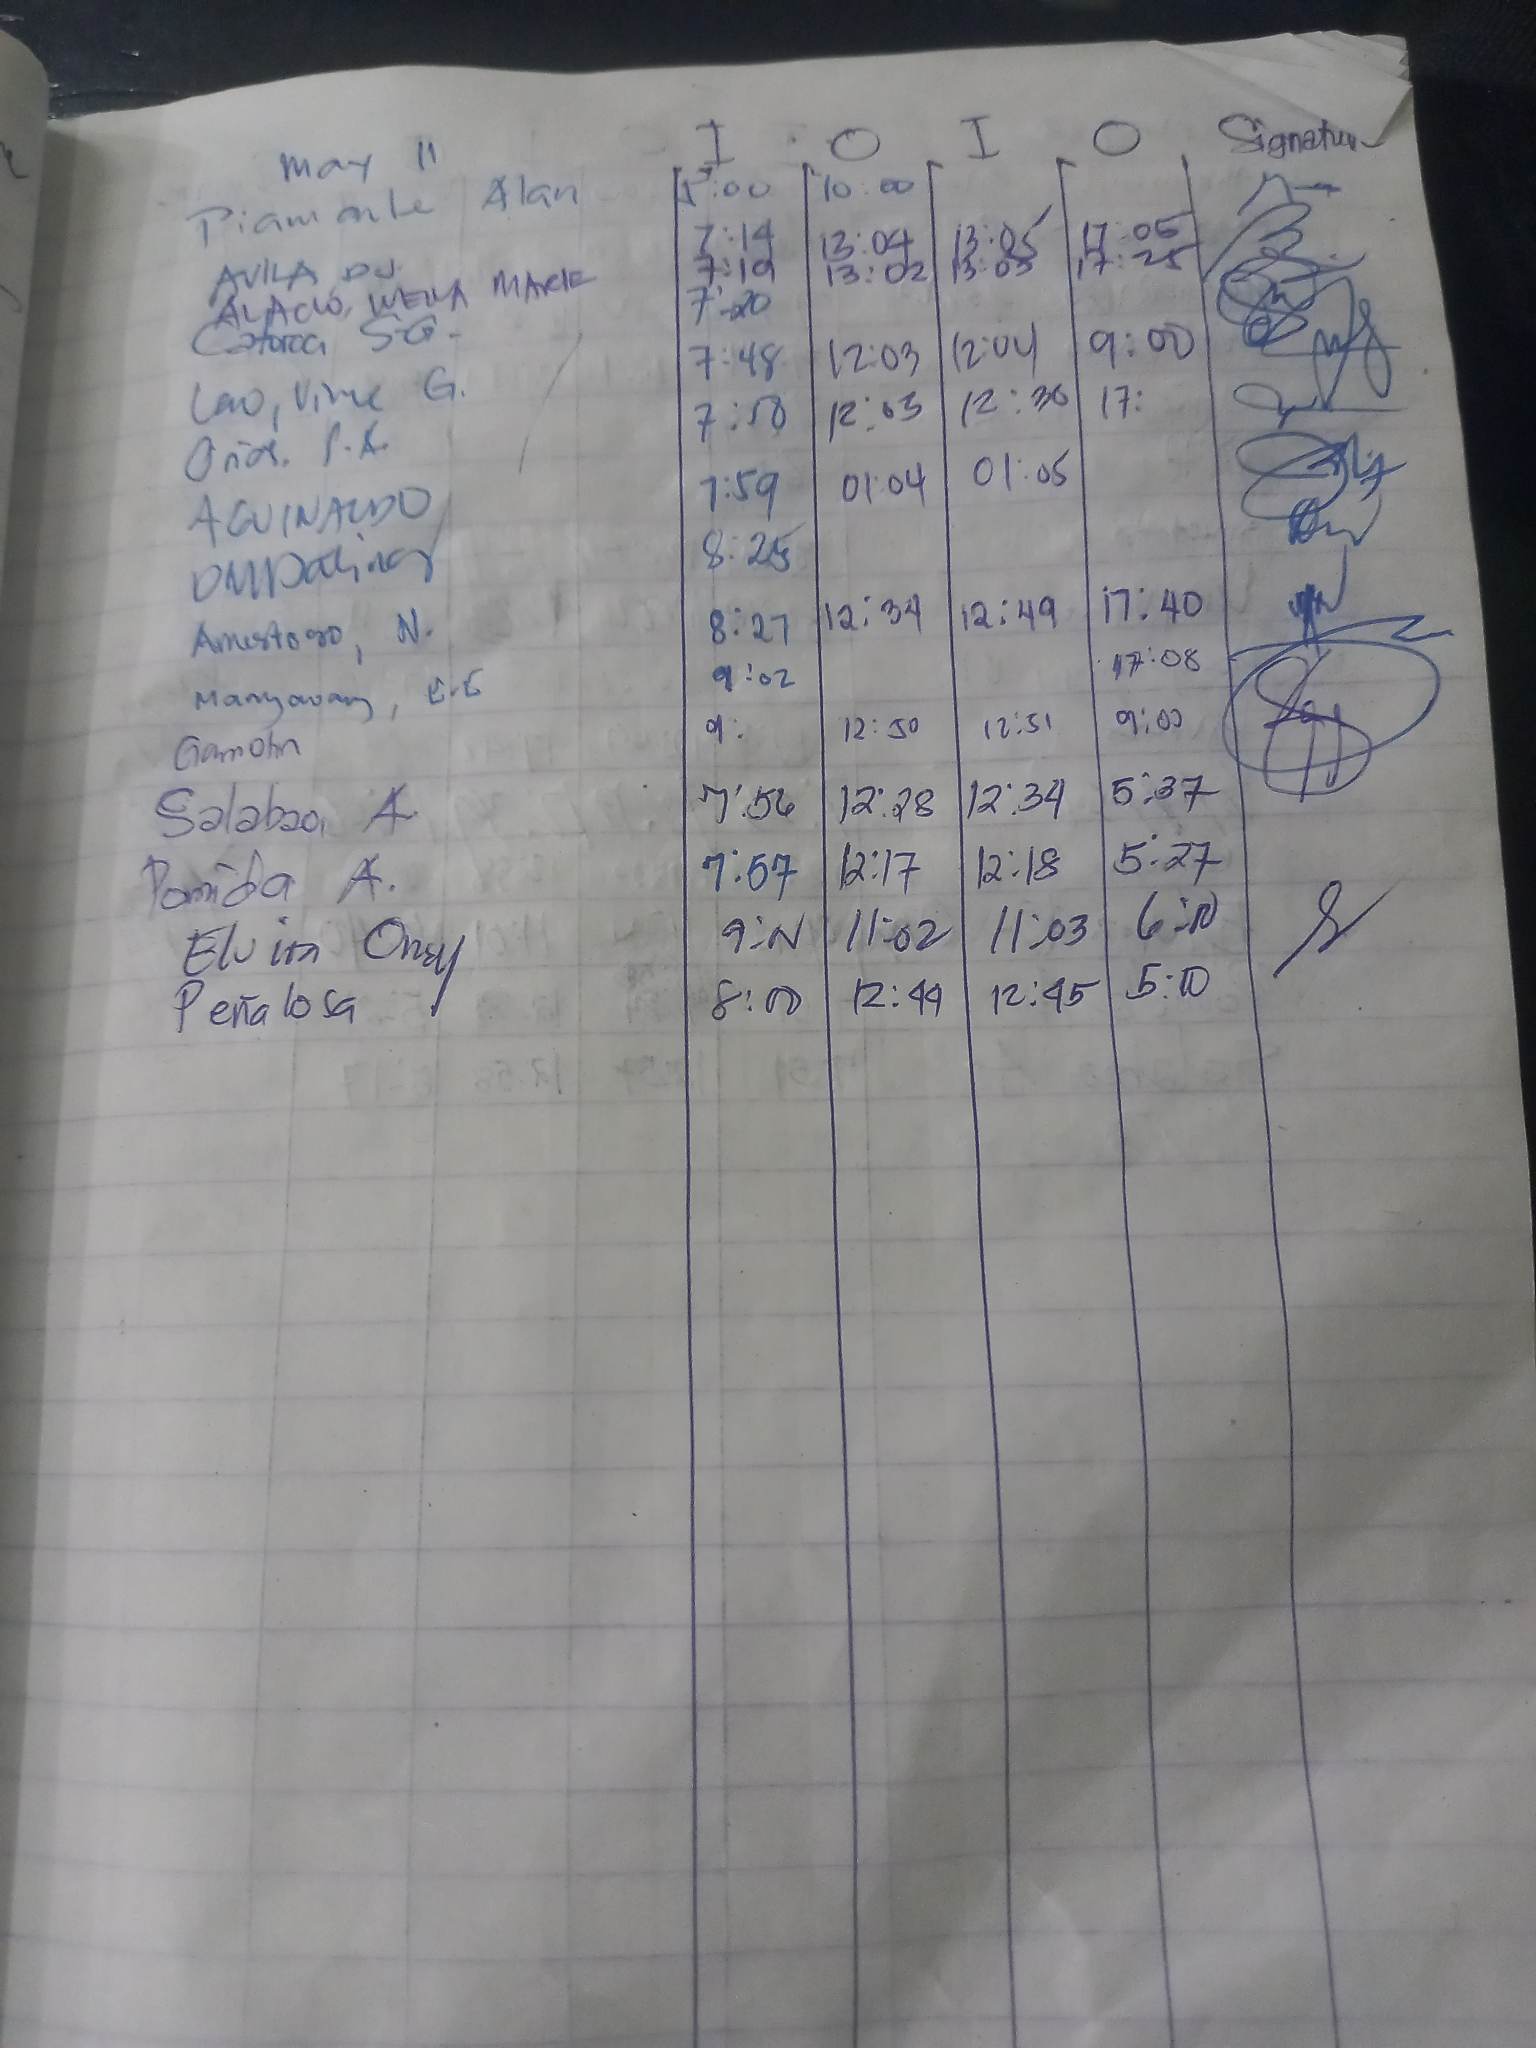 May 11 I O I O Signature
Piamonte Alan 5:00 10:00
AVILA DJ 7:14 13:04 13:05 17:05
ALACIO, MARIE 7:19 13:02 13:03 17:25
S.G. 7:20
Lao, Vince G. 7:48 12:03 12:04 9:00
P.A. 7:50 12:03 12:30 17:
AGUINALDO 7:59 01:04 01:05
8:25
Amestoso, N. 8:27 12:34 12:49 17:40
E.E 9:02 17:08
Gamotin 9: 12:50 12:51 9:00
Salabao, A. 7:56 12:28 12:34 5:37
Pomida A. 7:57 12:17 12:18 5:27
Elvira Ongy 9: 11:02 11:03 6:10
Peñalosa 8:00 12:44 12:45 5:10